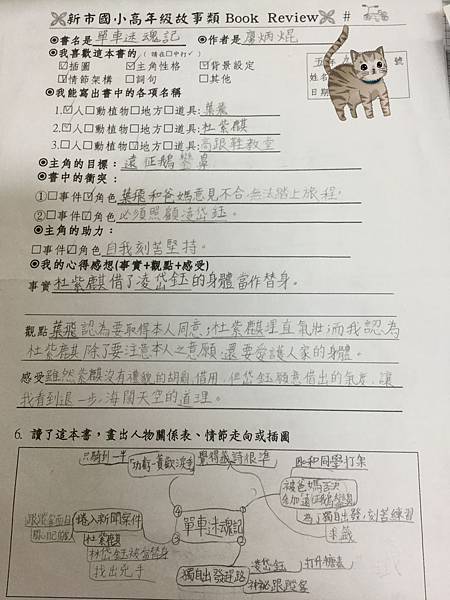 新市國小高年級故事類 Book Review #
◎書名是 單車迷魂記 ◎作者是 廖炳焜
◎我喜歡這本書的（請在□中打✓） 五年 號
☑插圖 ☑主角性格 ☑背景設定 姓名
☑情節架構 □詞句 □其他 日期
◎我能寫出書中的各項名稱
1.☑人□動植物□地方□道具:葉飛
2.☑人□動植物□地方□道具:杜紫麒
3.□人□動植物☑地方□道具:高跟鞋教堂
◎主角的目標：遠征鵝鑾鼻
◎書中的衝突：
①□事件☑角色 葉飛和爸媽意見不合,無法踏上旅程，
②□事件☑角色 必須照顧凌岱鈺。
◎主角的助力：
□事件☑角色 自我刻苦堅持。
◎我的心得感想(事實+觀點+感受)
事實 杜紫麒借了凌岱鈺的身體當作替身。
觀點 葉飛認為要取得本人同意；杜紫麒理直氣壯；而我認為
杜紫麒除了要注意本人之意願,還要愛護人家的身體。
感受 雖然紫麒沒有禮貌的胡亂借用，但岱鈺願意借出的氣度，讓
我看到退一步,海闊天空的道理。
6. 讀了這本書，畫出人物關係表、情節走向或插圖
只騎到一半 覺得籤詩很準 和同學打架
被爸媽否決
參加遠征鵝鑾鼻
捲入新聞案件 單車迷魂記 為了獨自出發,刻苦練習
杜紫麒 求籤
林岱鈺被當替身
找出兇手 獨自出發趕路 凌岱鈺
跟蹤客